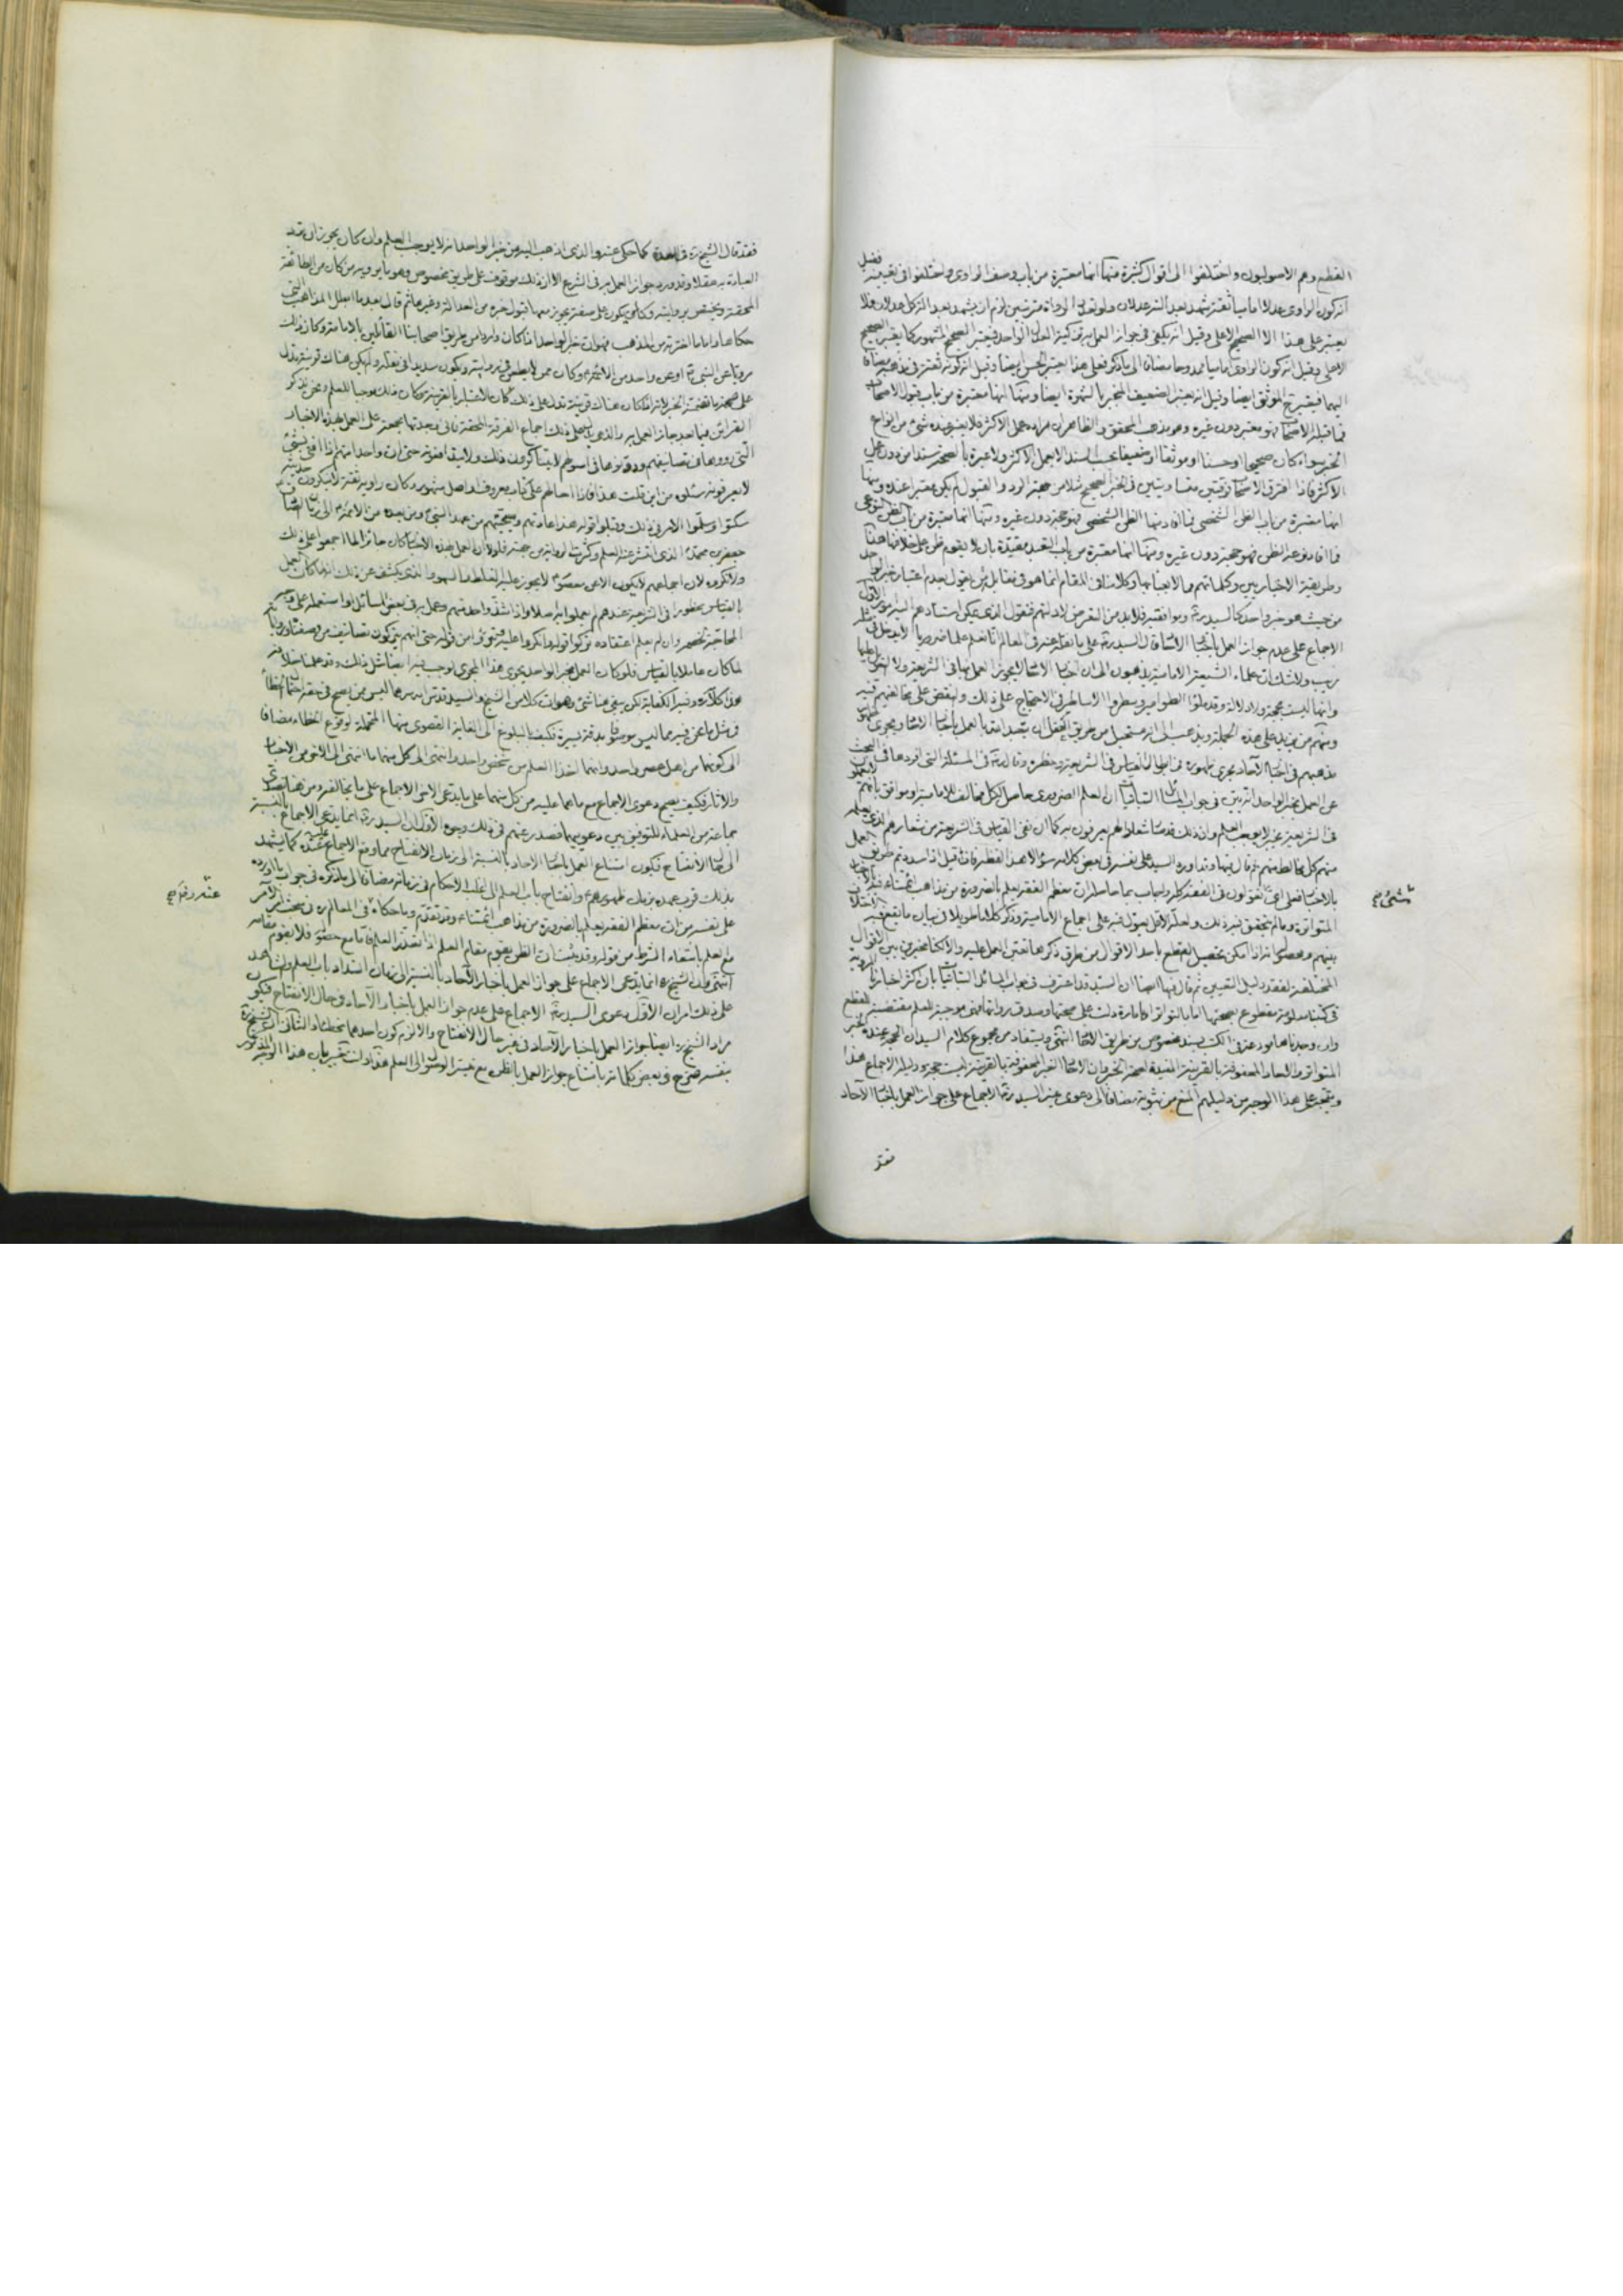 القطع وهم الاصوليون واختلفوا الى اقوال كثيرة منها انها معتبرة من باب وصف الراوى واختلفوا فى تعيينه فقيل
انه كون الراوى عدلا اماميا ثقة
يعتبر على هذا الا الصحيح الاعلى وقيل انه يكفى فى جواز العمل به تزكية العدل الواحد فيعتبر الصحيح المشهور كما يعتبر الصحيح
الاعلى وقيل انه كون الراوى اماميا ممدوحا مضافا الى ما ذكر فعلى هذا يعتبر الحسن ايضا وقيل انه كونه ثقة
ايضا وقيل انه يعتبر الضعيف المنجبر بالشهرة ايضا ومنها انها معتبرة من باب قبول الاصحاب
فما قبله الاصحاب فهو معتبر دون غيره وهو مذهب المحقق والظاهر ان مراده عمل الاكثر فلا يعتبر عنده شئ من انواع
الخبر سواء كان صحيحا او حسنا او موثقا او ضعيفا بحسب السند الا بعمل الاكثر ولا عبرة بالصحة سندا من دون عمل
الاكثر فاذا افترق الاصحاب فرقتين متساويتين فى الخبر الصحيح مثلا من جهة الرد والقبول لم يكن معتبرا عنده ومنها
انها معتبرة من باب الظن الشخصى فما افاد منها الظن الشخصى فهو حجة دون غيره ومنها انها معتبرة من باب الظن النوعى
فما افاد نوعه الظن فهو حجة دون غيره ومنها انها معتبرة من باب التعبد مقيدة بان لا يقوم ظن على خلافها هذا
وطريقة الاخباريين وكلماتهم مما لا يعبأ بها وكلامنا فى المقام انما هو فى مقابل من يقول بعدم اعتبار خبر الواحد
من حيث هو خبر واحد كالسيد ره وموافقيه فلا بد من التعرض لادلتهم فنقول الذى يمكن استنادهم اليه امور الاول
الاجماع على عدم جواز العمل باخبار الآحاد قال السيد ره على ما نقل عنه فى المعالم انا نعلم علما ضروريا لا يدخل فى مثله
ريب ولا شك ان علماء الشيعة الامامية يذهبون الى ان اخبار الآحاد لا يجوز العمل بها فى الشريعة ولا التعويل عليها
وانها ليست بحجة ولا دلالة وقد ملؤا الطوامير وسطروا الاساطير فى الاحتجاج على ذلك والنقض على مخالفيهم فيه
ومنهم من يزيد على هذه الجملة ويذهب الى انه مستحيل من طريق العقول ان يتعبد الله بالعمل باخبار الآحاد ويجرى ظهور
مذهبهم فى اخبار الآحاد مجرى ظهوره فى ابطال القياس فى الشريعة وحظره وقال ايضا فى المسئلة التى افردها فى البحث
عن العمل بخبر الواحد انه بين فى جواب المسائل التبانيات ان العلم الضرورى حاصل لكل مخالف للامامية او موافق بانهم لا يعملون
فى الشريعة بخبر لا يوجب العلم وان ذلك قد صار شعارا لهم يعرفون به كما ان نفى القياس فى الشريعة من شعارهم الذى يعلمه
منهم كل مخالط لهم ثم قال فيها وقد اورد السيد على نفسه فى بعض كلامه سؤالا هذا لفظه فان قيل اذا سددتم طريق العمل
بالاخبار فعلى اى شئ تعولون فى الفقه كله واجاب بما حاصله ان معظم الفقه يعلم بالضرورة من مذاهب ائمتنا
المتواترة وما لم يتحقق فيه ذلك ولعله الاقل يعول فيه على اجماع الامامية وذكر كلاما طويلا فى بيان ما يقع فيه الاختلاف
بينهم ومحصوله انه اذا امكن تحصيل القطع باحد الاقوال من طرق ذكرها تعين العمل عليه والا كنا مخيرين بين الاقوال
المختلفة لفقد دليل التعيين ثم قال فيها ايضا ان السيد قد اعترف فى جواب المسائل التبانيات بان اكثر اخبارنا المروية
فى كتبنا معلومة مقطوع بصحتها اما بالتواتر او بامارة دلت على صحتها وصدق رواتها فهى موجبة للعلم مقتضية للقطع
وان وجدناها مودعة فى الكتب بسند مخصوص من طريق الآحاد انتهى ويستفاد من مجموع كلام السيد ان الحجة عنده الخبر
المتواتر والآحاد المحفوفة بالقرينة المفيدة لصحة الخبر وان الآحاد الغير المحفوفة بالقرينة ليست حجة ودليله الاجماع هذا
ويتجه على هذا الوجه من دليلهم المنع من ثبوته مضافا الى دعوى غير السيد ره الاجماع على جواز العمل باخبار الآحاد
فقد
فقد قال الشيخ ره فى العدة كما حكى عنه والذى اذهب اليه من خبر الواحد انه لا يوجب العلم وان كان يجوز ان ترد
العبادة به عقلا وقد ورد جواز العمل به فى الشرع الا ان ذلك موقوف على طريق مخصوص وهو ما يرويه من كان من الطائفة
المحقة ويختص بروايته وكان يكون على صفة يجوز معها قبول خبره من العدالة وغيرها ثم قال بعد ما ابطل المذاهب التى
حكاها واما ما اخترته من المذهب فهو ان خبر الواحد اذا كان واردا من طريق اصحابنا القائلين بالامامة وكان ذلك
مرويا عن النبى ص او عن واحد من الائمة ع وكان ممن لا يطعن فى روايته ويكون سديدا فى نقله ولم يكن هناك قرينة تدل
على صحة ما تضمنه الخبر لانه اذا كان هناك قرينة تدل على ذلك كان الاعتبار بالقرينة وكان ذلك موجبا للعلم ونحن نذكر
القرائن فيما بعد جاز العمل به والذى يدل على ذلك اجماع الفرقة المحقة فانى وجدتها مجمعة على العمل بهذه الاخبار
التى رووها فى تصانيفهم ودونوها فى اصولهم لا يتناكرون ذلك ولا يتدافعونه حتى ان واحدا منهم اذا افتى بشئ
لا يعرفونه سئلوه من اين قلت هذا فاذا احالهم على كتاب معروف او اصل مشهور وكان راويه ثقة لا ينكرون حديثه
سكتوا وسلموا الامر فى ذلك وقبلوا قوله هذا عادتهم وسجيتهم من عهد النبى ص ومن بعده من الائمة ع الى زمان الصادق
جعفر بن محمد ع الذى انتشر عنه العلم وكثرت الرواية من جهته فلولا ان العمل بهذه الاخبار كان جائزا لما اجمعوا على ذلك
ولانكروه لان اجماعهم لا يكون الا عن معصوم لا يجوز عليه الغلط والسهو والذى يكشف عن ذلك انه لما كان العمل
بالقياس محظورا فى الشريعة عندهم لم يعملوا به اصلا واذا شذ واحد منهم وعمل به فى بعض المسائل او استعمله على وجه
المحاجة لخصمه وان لم يعلم اعتقاده تركوا قوله وانكروا عليه وتبرؤا من قوله حتى انهم يتركون تصانيف من وصفناه ورواياته
لما كان عاملا بالقياس فلو كان العمل بخبر الواحد يجرى هذا المجرى لوجب فيه ايضا مثل ذلك وقد علمنا خلافه
هذا كلامه وفيه الكفاية لكن بقى هنا شئ وهو ان كلا من الشيخ والسيد قدس سرهما
الى كونهما من اهل عصر واحد وانهما اخذا العلم من شخص واحد وانتهى الى كل منهما ما انتهى الى الآخر من الاخبار
والآثار فكيف يصح دعوى الاجماع مع ما هما عليه من كل منهما على ما يدعى الآخر الاجماع على ما يخالفه ومن هنا تصدى
جماعة من العلماء للتوفيق بين دعوييهما
الى حال الانفتاح فيكون امتناع العمل باخبار الآحاد بالنسبة الى زمان الانفتاح مما وقع الاجماع عليه عنده كما يشهد
بذلك قرب عهده بزمان ظهورهم ع وانفتاح باب العلم الى اغلب الاحكام فى زمانه مضافا الى ما ذكره فى جواب ما اورده
على نفسه من ان معظم الفقه يعلم بالضرورة من مذاهب ائمتنا ع وقد تقدم وما حكاه فى المعالم
انتهى وان الشيخ ره انما يدعى الاجماع على جواز العمل باخبار الآحاد بالنسبة الى زمان انسداد باب العلم والشاهد
على ذلك امران الاول دعوى السيد ره الاجماع على عدم جواز العمل باخبار الآحاد فى حال الانفتاح فيكون
مراد الشيخ ره ايضا جواز العمل باخبار الآحاد فى غير حال الانفتاح والا لزم كون احدهما مخطئا والثانى ان الشيخ ره
بنفسه صرح فى بعض كلماته بامتناع جواز العمل بالظن مع تيسر الوصول الى العلم